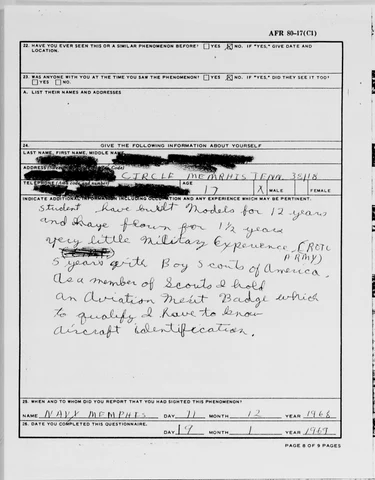 AFR 80-17(C1)
22. HAVE YOU EVER SEEN THIS OR A SIMILAR PHENOMENON BEFORE? YES NO. IF "YES," GIVE DATE AND
LOCATION.
23. WAS ANYONE WITH YOU AT THE TIME YOU SAW THE PHENOMENON? YES NO. IF "YES," DID THEY SEE IT TOO?
YES NO
A. LIST THEIR NAMES AND ADDRESSES
24. GIVE THE FOLLOWING INFORMATION ABOUT YOURSELF
LAST NAME, FIRST NAME, MIDDLE NAME
ADDRESS
CIRCLE MEMPHIS TENN 38118
TELEPHONE (Area code and number) AGE
17 X MALE FEMALE
INDICATE ADDITIONAL INFORMATION INCLUDING OCCUPATION AND ANY EXPERIENCE WHICH MAY BE PERTINENT.
Student have built Models for 12 years
and have flown for 1½ years
very little Military Experience (ROTC
ARMY)
5 years with Boy Scouts of America.
As a member of Scouts I hold
an Aviation Merit Badge which
to qualify I have to know
aircraft identification.
25. WHEN AND TO WHOM DID YOU REPORT THAT YOU HAD SIGHTED THIS PHENOMENON?
NAME NAVY MEMPHIS DAY 11 MONTH 12 YEAR 1966
26. DATE YOU COMPLETED THIS QUESTIONNAIRE.
DAY 19 MONTH 1 YEAR 1967
PAGE 8 OF 9 PAGES